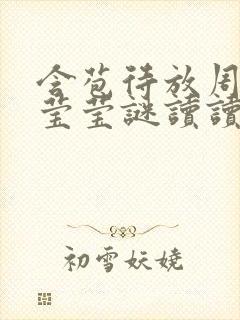 含苞待放周
莹莹謎讀讀
初雪妖娆